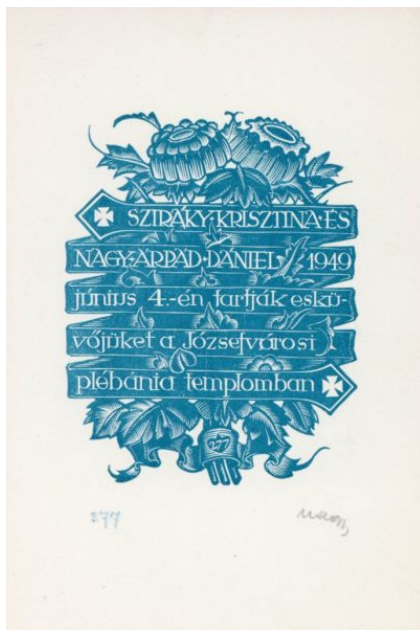 SZIRÁKY·KRISZTINA·ÉS
NAGY·ÁRPÁD·DÁNIEL 1949
június 4.-én tartják eskü-
vőjüket a Józsefvárosi
plébánia templomban
277